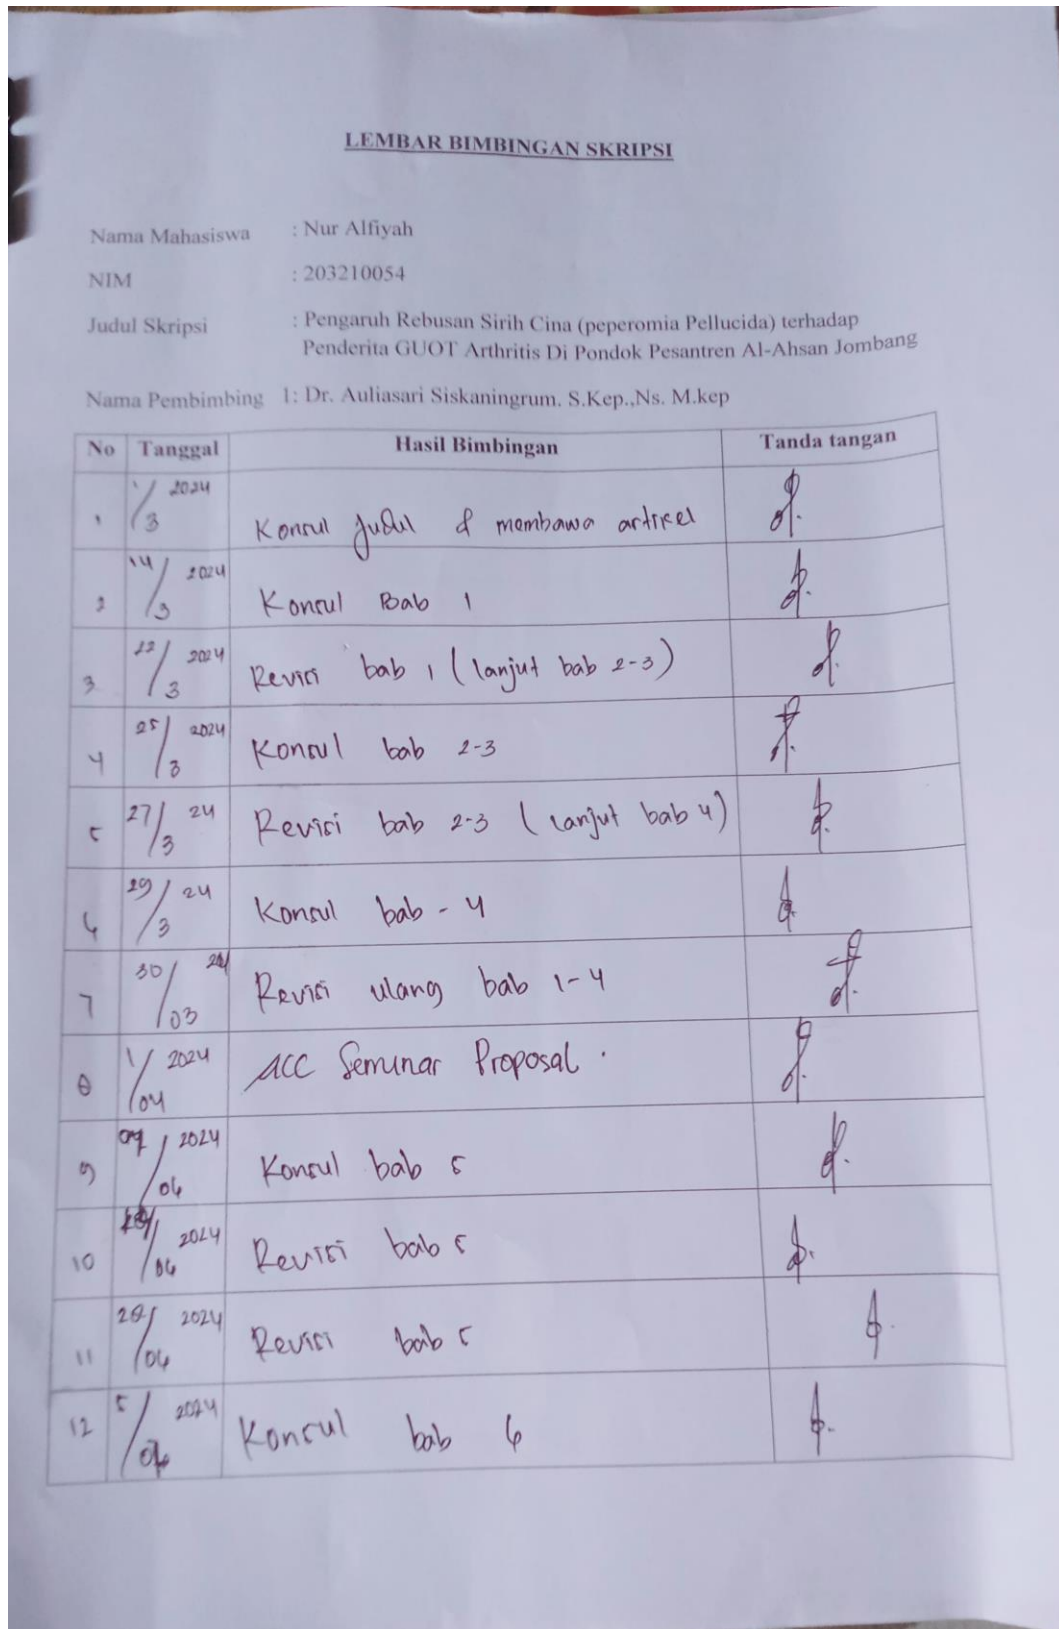 LEMBAR BIMBINGAN SKRIPSI
Nama Mahasiswa : Nur Alfiyah
NIM : 203210054
Judul Skripsi : Pengaruh Rebusan Sirih Cina (peperomia Pellucida) terhadap
Penderita GUOT Arthritis Di Pondok Pesantren Al-Ahsan Jombang
Nama Pembimbing 1: Dr. Auliasari Siskaningrum. S.Kep.,Ns. M.kep
No Tanggal Hasil Bimbingan Tanda tangan
1 1/3 2024 Konsul Judul & membawa artikel
2 14/3 2024 Konsul Bab 1
3 22/3 2024 Revisi bab 1 (lanjut bab 2-3)
4 25/3 2024 Konsul bab 2-3
5 27/3 24 Revisi bab 2-3 (lanjut bab 4)
6 29/3 24 Konsul bab - 4
7 30/03 Revisi ulang bab 1-4
8 1/04 2024 ACC Seminar Proposal.
9 2024 Konsul bab 5
10 2024 Revisi bab 5
11 2024 Revisi bab 5
12 2024 Konsul bab 6